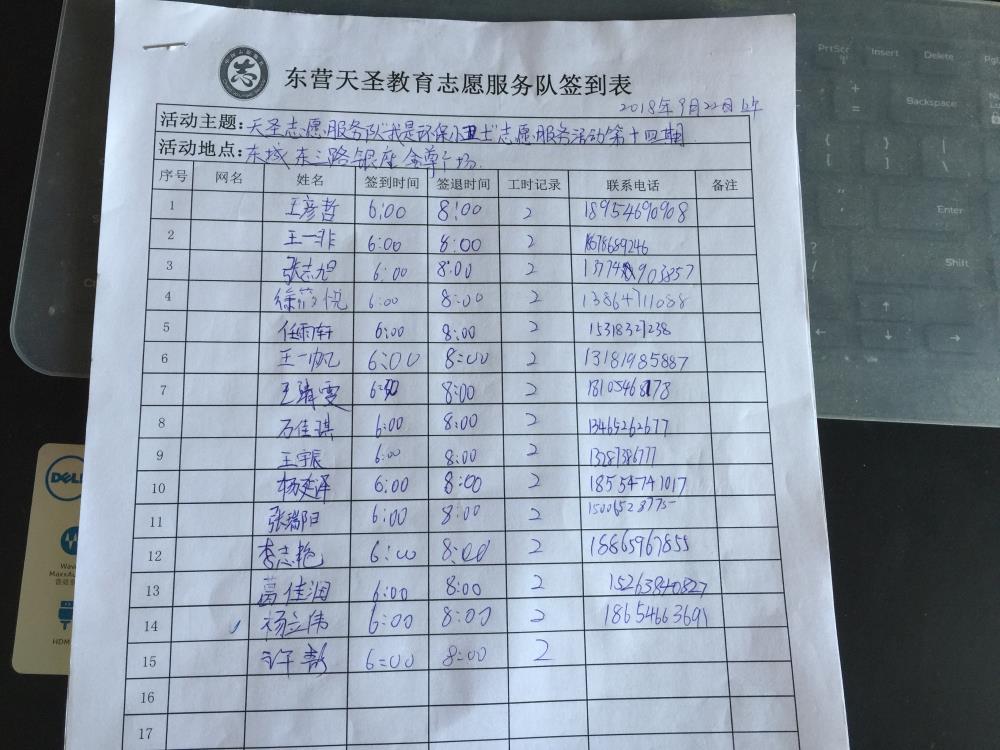 东营天圣教育志愿服务队签到表
2018年9月22日
活动主题:天圣志愿服务队"我是环保小卫士"志愿服务活动第十四期
活动地点:东城东三路银座金尊广场.
序号 网名 姓名 签到时间 签退时间 工时记录 联系电话 备注
1 王彦哲 6:00 8:00 2 18954690908
2 王一非 6:00 8:00 2 1678689246
3 张志旭 6:00 8:00 2
4 6:00 8:00 2 13864711088
5 任雨轩 6:00 8:00 2 15318327238
6 王一帆 6:00 8:00 2 13181985887
7 王清雯 8:00 2
8 石佳琪 6:00 8:00 2 13465262677
9 王宇辰 6:00 8:00 2
10 杨奕泽 6:00 8:00 2 18554741017
11 张瑞阳 6:00 8:00 2
12 李志艳 6:00 8:00 2 18865967855
13 葛佳润 6:00 8:00 2 15263840827
14 杨立伟 6:00 8:00 2 18654663691
15 许彭 6=00 8=00 2
16
17
PrtScr Insert Delete
Backspace
Enter
Shift
DELL
HDM